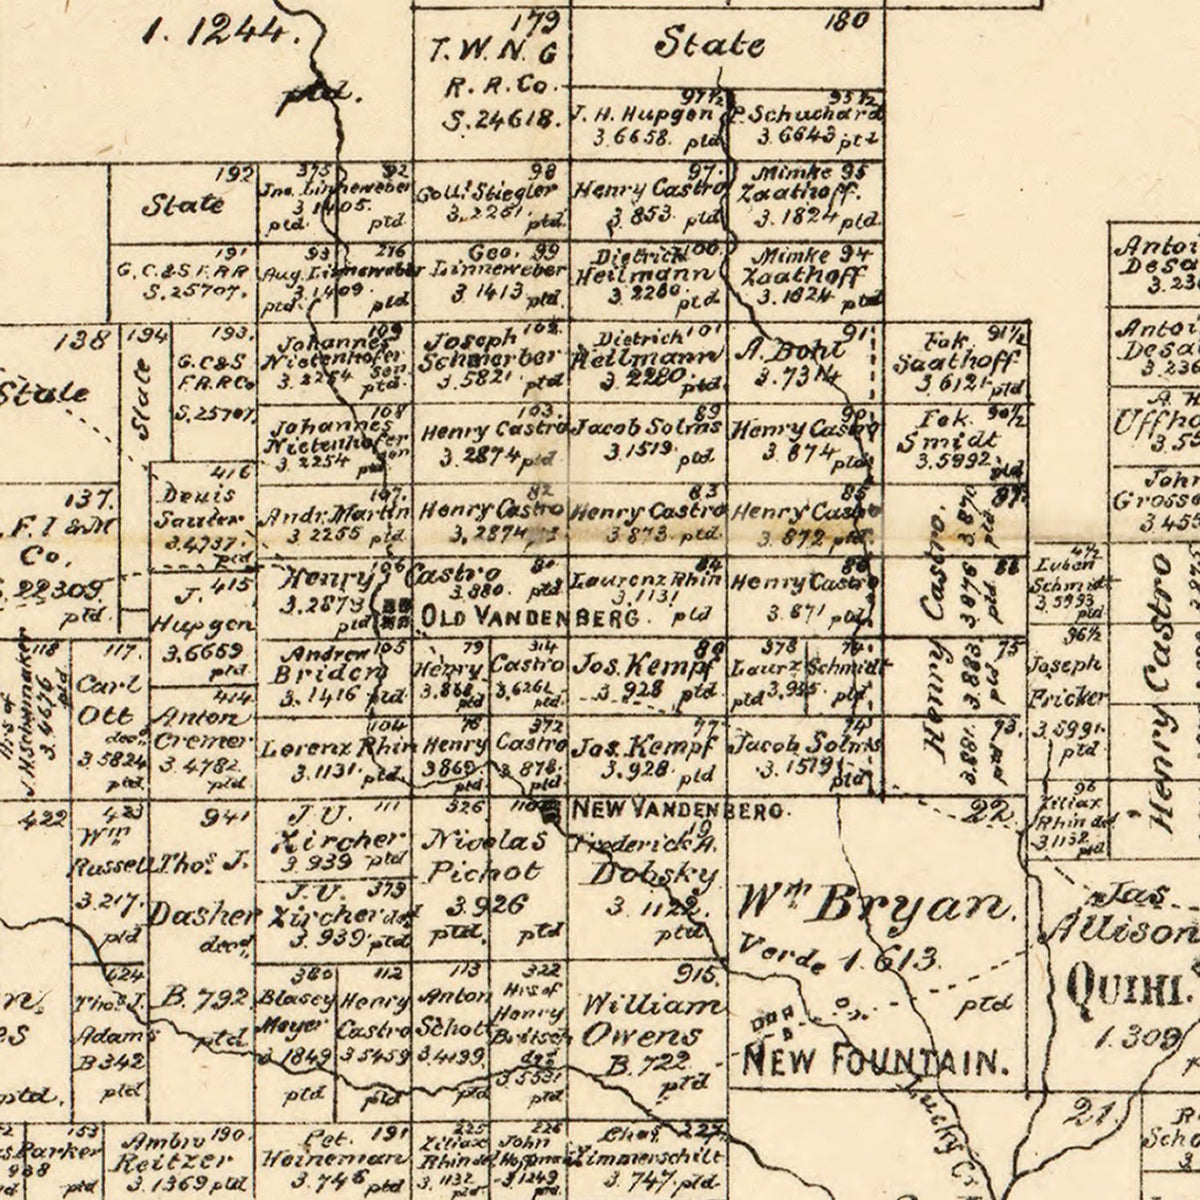 1. 1244.
ptd.
179
T. W. N. G
R. R. Co.
S. 24618.
State 180
97½
J. H. Hupgen
3.6658. ptd
95½
P. Schuchard
3.6643 ptd
192
State
375 92
Jno. Linneweber
3.1405.
ptd. ptd
98
Gott. Stiegler
3.2251. ptd
97.
Henry Castro
3.853. ptd
Mimke 95
Zaathoff.
3.1824 ptd
191
G.C.&S.F.R.R
S.25707.
93 276
Aug. Linneweber
3.1409.
ptd. ptd
Geo. 99
Linneweber
3.1413 ptd.
Dietrich 100
Heilmann
3.2280. ptd
Mimke 94
Zaathoff
3.1824. ptd
Antoi
Desa
3.236
138
State
194
State
193.
G.C&S
F.R.R Co
S.25707.
109
Johannes
Nietenhofer
Sen
3.2254 ptd.
102.
Joseph
Schmerber
3.5821 ptd
Dietrich 101
Heilmann
3.2280. ptd
91
A. Bohl
3.731½
Fok. 91½
Saathoff
3.6121 ptd
Antoi
Desa
3.236
108
Johannes
Nietenhofer
3.2254 ptd
103.
Henry Castro
3.2874 ptd
89
Jacob Solms
3.1519. ptd
90
Henry Castro
3.874 ptd
Fok. 90½
Smidt
3.5992. ptd
A. H
Uffho
3.55
416
Deuis
Sauter
3.4737.
ptd
137.
F. I &M
Co.
22309.
ptd.
107.
Andr. Martin
3.2255 ptd
82
Henry Castro
3.2874
83
Henry Castro
3.873 ptd
85
Henry Castro
3.872 ptd
87.
3.870 ptd
John
Gross
3.455
415
J.
Hupgen
3.6659
ptd
106
Henry Castro
3.2873 ptd
81
3.880. ptd
OLD VANDENBERG.
84
Laurenz Rhin
3.1131 ptd
86
Henry Castro
3.871 ptd
Henry Castro.
88
3.876 ptd
Luben
Schmidt
3.5993
ptd
Henry Castro
118
Hrs of
J.H. Schunmaker
3.4676 ptd
117.
Carl
Ott
decd
3.5824
ptd.
414
Anton
Cremer
3.4782
ptd.
105
Andrew
Briden
3.1416 ptd
79
Henry
3.868
ptd
314
Castro
3.6261
ptd
80
Jos. Kempf
3.928 ptd
378 76
Laurz Schmidt
ptd 3.935 ptd
75
3.883. ptd
Henry Castro
96½
Joseph
Fricker
3.5991.
ptd
104
Lorenz Rhin
3.1131. ptd
78
Henry
3.869.
ptd
372
Castro
3.878.
ptd
77
Jos. Kempf
3.928. ptd
74
Jacob Solms
3.1519 ptd
73.
3.881. ptd
422
423
Wm
Russell
3.217.
ptd
941
Thos. J.
Dasher
decd.
B. 792.
ptd
J. U. 111
Zircher
3.939 ptd
J. U. 379
Zircher
3.939 ptd
326 110
Nicolas
Pichot
3.926
ptd. ptd
NEW VANDENBERG.
19
Frederick A.
Dobsky
3.1122.
ptd
22.
Wm Bryan.
Verde 1.613.
ptd
NEW FOUNTAIN.
96
Ziliax
Rhinde
3.1132
ptd
Jas
Allison
QUIHI.
1.309
424
Thos. J.
Adams
B 342
ptd
ptd.
380
Blasey
Meyer
3.1849
ptd
112
Henry
Castro
3.5459
ptd
113
Anton
Schott
3.4199.
ptd
322
Hrs of
Henry
decd
3.5531
ptd
915
William
Owens
B. 722.
ptd
21.
153
Parker
988
ptd
Ambro 190.
Reitzer
3.1369 ptd
Pet. 191
Heineman
3.746 ptd
225
Ziliax
Rhinde
3.1132
ptd
226
John
Hoffman
3.1249
ptd
Chas. 227.
Zimmerschilt
3.747. ptd
Lucky Cr.